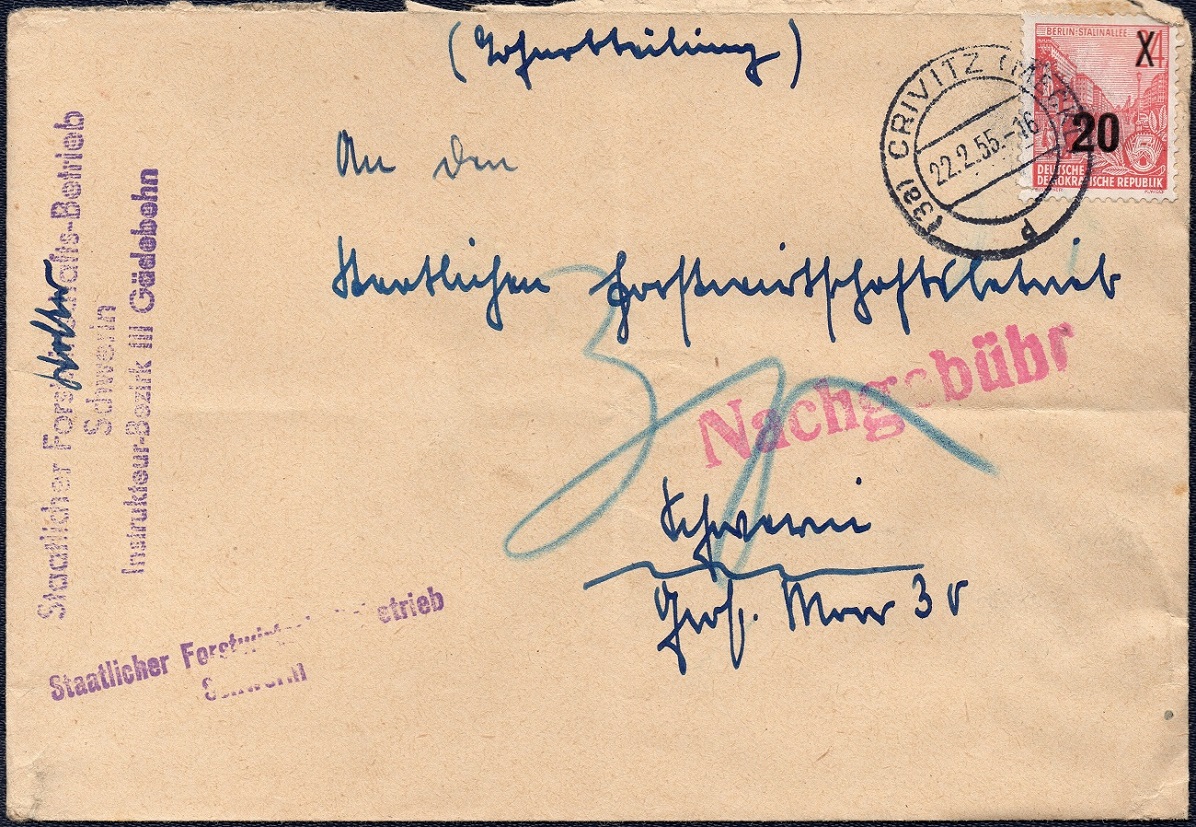 (Lohnabteilung)
BERLIN-STALINALLEE
X
20
5
DEUTSCHE
DEMOKRATISCHE REPUBLIK
(3a) CRIVITZ (MECKL)
22.2.55.-16
An den
Staatlichen Forstwirtschaftsbetrieb
Nachgebühr
Schwerin
Moor 30
Staatlicher Forstwirtschafts-Betrieb
Schwerin
Instrukteur-Bezirk III Gädebehn
Staatlicher Forstwirtschaftsbetrieb
Schwerin